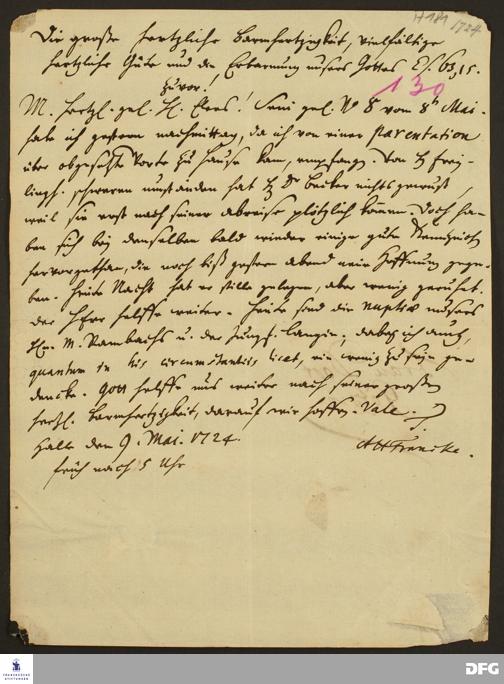 H 181 1724
Die große hertzliche Barmhertzigkeit, vielfältige
hertzliche Güte und die Erbarmung unsers Gottes Es. 63, 15.
zuvor!
130
M. hertzl. gel. H. ! Sein gel. N 8 vom 8t Mai.
habe ich gestern nachmittag, da ich von einer parentation
über obgesetzte Worte zu Hause kam, empfangen. Von H Frey-
lingh. schweren umständen hat H Dr Becker nichts gewust
weil sie erst nach seiner abreise plötzlich kommen. Doch ha-
ben sich bey denselben bald wieder einige gute Kennzeich
hervorgethan, die noch biß gestern abend mir Hoffnung gege-
ben. Heute Nacht hat er stille gelegen, aber wenig geruhet.
Der HErr helffe weiter. Heute sind die nuptiæ unsers
Hn. M. Rambachs u. der Jungf. Langin; dabey ich auch,
quantum in his circumstantiis licet, ein wenig zu seyn ge-
dencke. Gott helffe uns weiter nach seiner großen
hertzl. Barmhertzigkeit, darauf wir hoffen. Vale.
Halle den 9. Mai. 1724.
AHFrancke.
früh nach 5 Uhr
FRANCKESCHE STIFTUNGEN
DFG